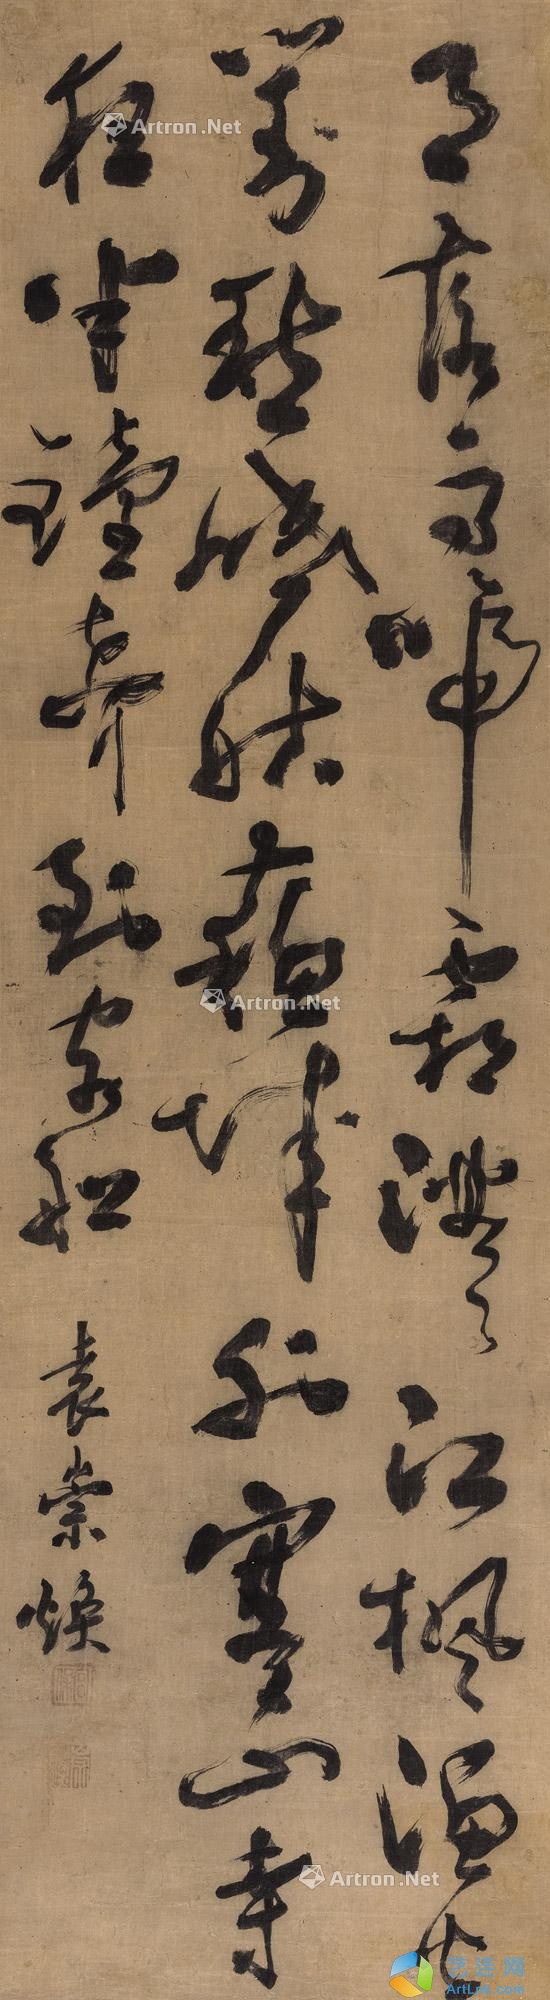 月落烏啼霜滿天江楓漁火
對愁眠姑蘇城外寒山寺
夜半鐘聲到客船
袁崇煥
Artron.Net
Artron.Net
Artron.Net
艺连网
ArtLine.com